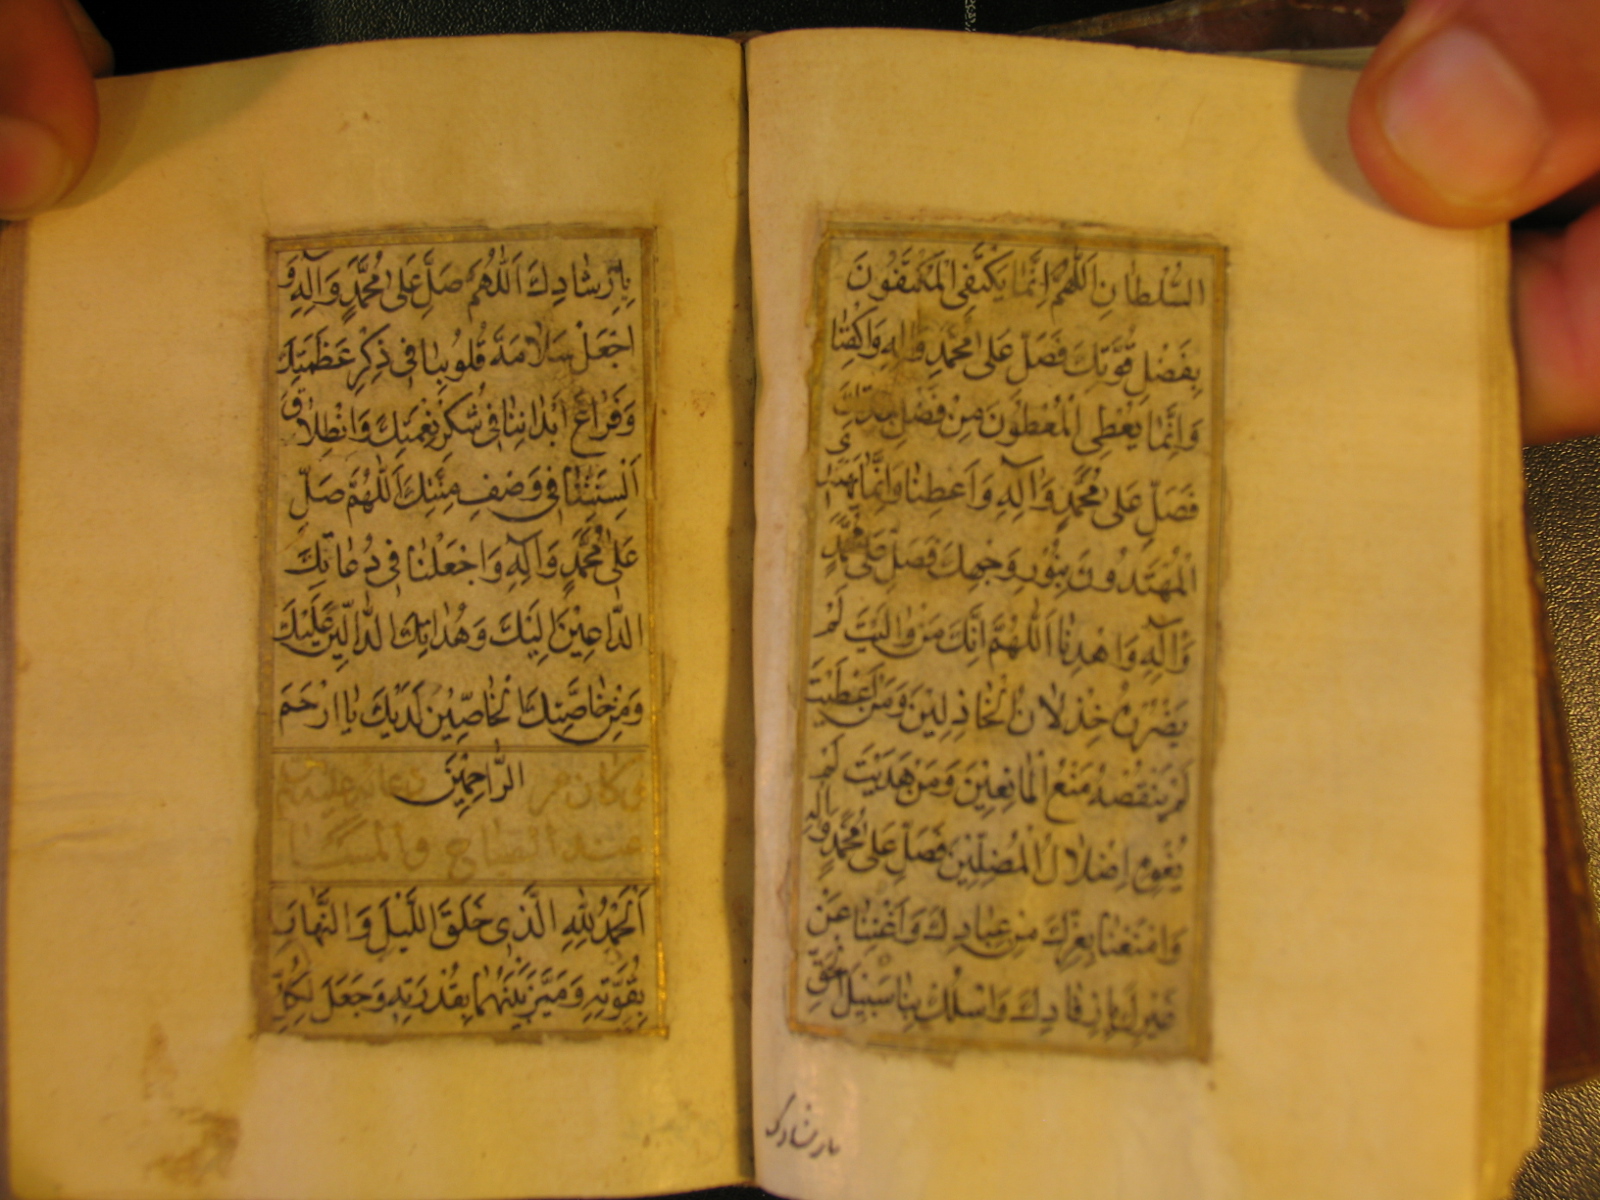 السُّلْطَانِ اَللّٰهُمَّ اِنَّمَا يَكْتَفِى الْمُكْتَفُونَ
بِفَضْلِ قُوَّتِكَ فَصَلِّ عَلٰى مُحَمَّدٍ وَاٰلِهِ وَاكْفِنَا
وَاِنَّمَا يُعْطِى الْمُعْطُونَ مِنْ فَضْلِ جِدَتِكَ
فَصَلِّ عَلٰى مُحَمَّدٍ وَاٰلِهِ وَاَعْطِنَا وَاِنَّمَا يَهْتَدِى
الْمُهْتَدُونَ بِنُورِ وَجْهِكَ فَصَلِّ عَلٰى مُحَمَّدٍ
وَاٰلِهِ وَاهْدِنَا اَللّٰهُمَّ اِنَّكَ مَنْ وَالَيْتَ لَمْ
يَضْرُرْهُ خِذْلَانُ الْخَاذِلِينَ وَمَنْ اَعْطَيْتَ
لَمْ يَنْقُصْهُ مَنْعُ الْمَانِعِينَ وَمَنْ هَدَيْتَ لَمْ
يُغْوِهِ اِضْلَالُ الْمُضِلِّينَ فَصَلِّ عَلٰى مُحَمَّدٍ وَاٰلِهِ
وَامْنَعْنَا بِعِزِّكَ مِنْ عِبَادِكَ وَاَغْنِنَا عَنْ
غَيْرِكَ بِاِرْفَادِكَ وَاسْلُكْ بِنَا سَبِيلَ الْحَقِّ
بارشادک
بِاِرْشَادِكَ اَللّٰهُمَّ صَلِّ عَلٰى مُحَمَّدٍ وَاٰلِهِ وَ
اجْعَلْ سَلَامَةَ قُلُوبِنَا فِى ذِكْرِ عَظَمَتِكَ
وَفَرَاغَ اَبْدَانِنَا فِى شُكْرِ نِعْمَتِكَ وَانْطِلَاقَ
اَلْسِنَتِنَا فِى وَصْفِ مِنَّتِكَ اَللّٰهُمَّ صَلِّ
عَلٰى مُحَمَّدٍ وَاٰلِهِ وَاجْعَلْنَا فِى دُعَاتِكَ
الدَّاعِينَ اِلَيْكَ وَهُدَاتِكَ الدَّالِّينَ عَلَيْكَ
وَمِنْ خَاصَّتِكَ الْخَاصِّينَ لَدَيْكَ يَا اَرْحَمَ
الرَّاحِمِينَ
وكان من دعائه عليه السلام
عند الصباح والمساء
اَلْحَمْدُ لِلّٰهِ الَّذِى خَلَقَ اللَّيْلَ وَالنَّهَارَ
بِقُوَّتِهِ وَمَيَّزَ بَيْنَهُمَا بِقُدْرَتِهِ وَجَعَلَ لِكُلِّ